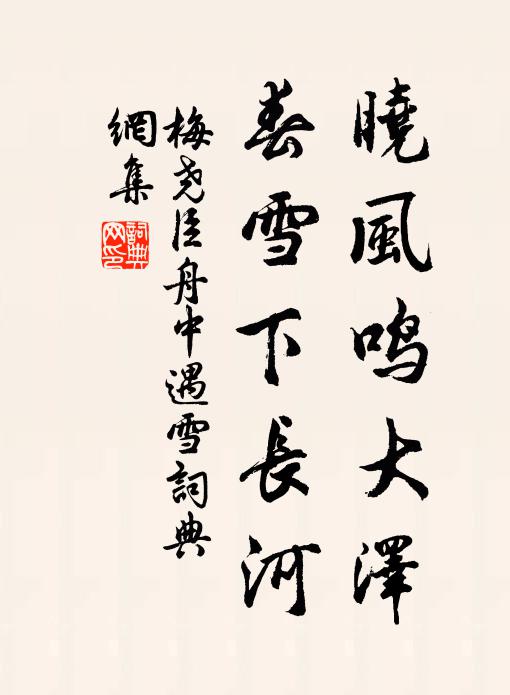 曉風鳴大澤
春雪下長河
梅堯臣舟中遇雪詞典
網集
詞典
网印